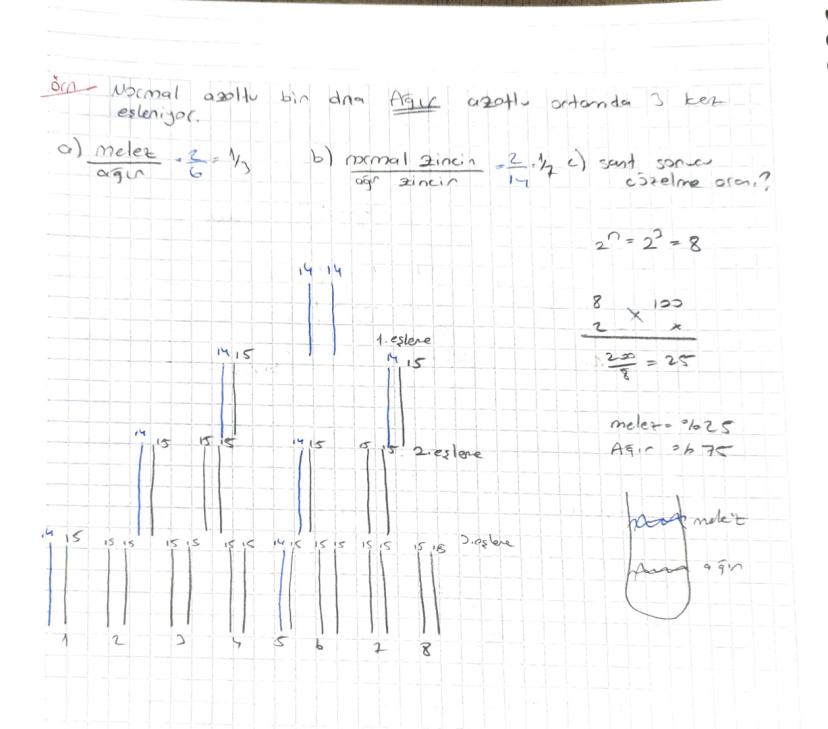 Örn Normal azotlu bir dna Ağır azotlu ortamda 3 kez
eşleniyor.
a) melez / ağır = 2/6 = 1/3
b) normal zincir / ağır zincir = 2/14 = 1/7
c) sant sonucu
çözelme oranı?
2ⁿ = 2³ = 8
8 100
2 x x
200/8 = 25
melez = %25
Ağır %75
melez
ağır
14 14
1. eşlene
14 15 14 15
14 15 15 15 14 15 15 15 2. eşlene
14 15 15 15 15 15 15 15 14 15 15 15 15 15 15 15 3. eşlene
1 2 3 4 5 6 7 8